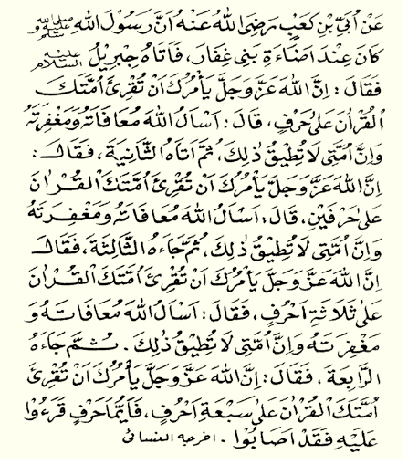 عَنْ أُبَيِّ بْنِ كَعْبٍ رَضِيَ اللهُ عَنْهُ أَنَّ رَسُولَ اللهِ صلى الله عليه وسلم
كَانَ عِنْدَ أَضَاءَةِ بَنِي غِفَارٍ، فَأَتَاهُ جِبْرِيلُ عليه السلام
فَقَالَ: إِنَّ اللهَ عَزَّ وَجَلَّ يَأْمُرُكَ أَنْ تُقْرِئَ أُمَّتَكَ
الْقُرْاٰنَ عَلَى حَرْفٍ، قَالَ: أَسْأَلُ اللهَ مُعَافَاتَهُ وَمَغْفِرَتَهُ
وَإِنَّ أُمَّتِي لَا تُطِيقُ ذٰلِكَ، ثُمَّ أَتَاهُ الثَّانِيَةَ، فَقَالَ:
إِنَّ اللهَ عَزَّ وَجَلَّ يَأْمُرُكَ أَنْ تُقْرِئَ أُمَّتَكَ الْقُرْاٰنَ
عَلَى حَرْفَيْنِ، قَالَ: أَسْأَلُ اللهَ مُعَافَاتَهُ وَمَغْفِرَتَهُ
وَإِنَّ أُمَّتِي لَا تُطِيقُ ذٰلِكَ، ثُمَّ جَاءَهُ الثَّالِثَةَ، فَقَالَ
إِنَّ اللهَ عَزَّ وَجَلَّ يَأْمُرُكَ أَنْ تُقْرِئَ أُمَّتَكَ الْقُرْاٰنَ
عَلَى ثَلَاثَةِ أَحْرُفٍ، فَقَالَ: أَسْأَلُ اللهَ مُعَافَاتَهُ وَ
مَغْفِرَتَهُ وَإِنَّ أُمَّتِي لَا تُطِيقُ ذٰلِكَ. ثُمَّ جَاءَهُ
الرَّابِعَةَ، فَقَالَ: إِنَّ اللهَ عَزَّ وَجَلَّ يَأْمُرُكَ أَنْ تُقْرِئَ
أُمَّتَكَ الْقُرْاٰنَ عَلَى سَبْعَةِ أَحْرُفٍ، فَأَيُّمَا حَرْفٍ قَرَءُوا
عَلَيْهِ فَقَدْ أَصَابُوا. اخرجه النسائى